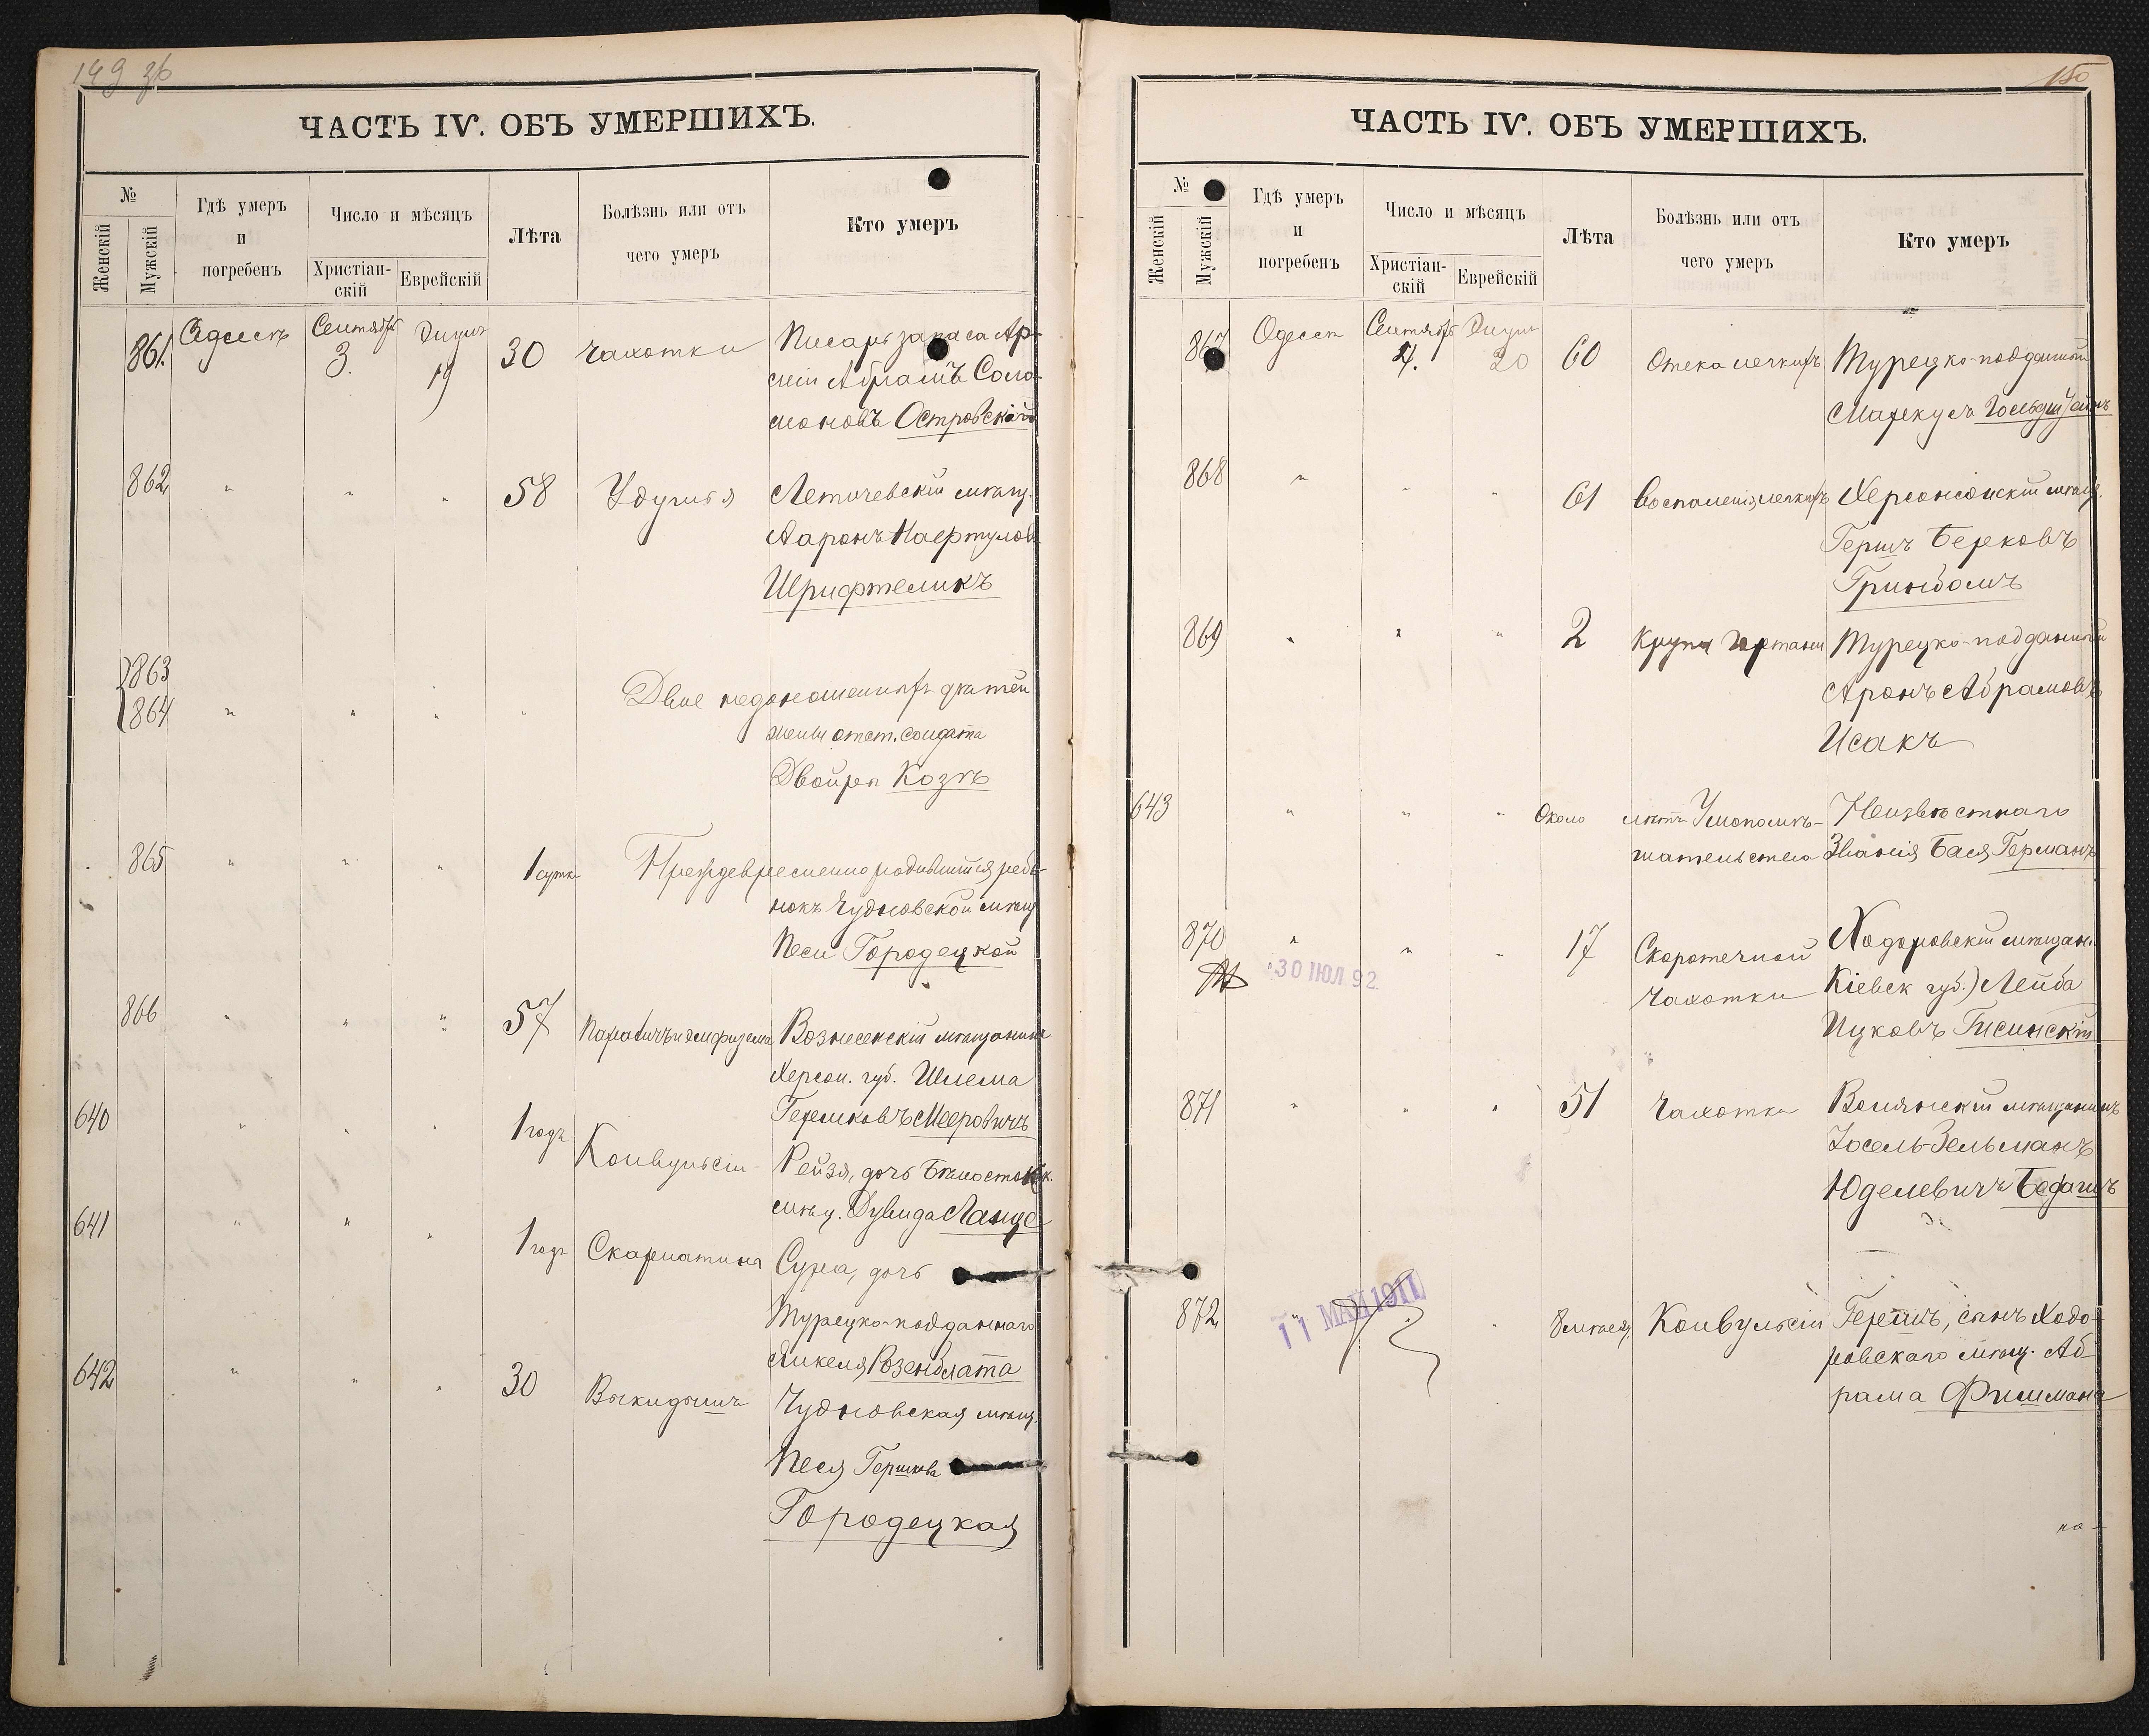 ЧАСТЬ IV. ОБЪ УМЕРШИХЪ.
№
Женскій
Мужскій
Гдѣ умеръ
и
погребенъ
Число и мѣсяцъ
Христіан-
скій
Еврейскій
Лѣта
Болѣзнь или отъ
чего умеръ
Кто умеръ
861. Одессѣ Сентября 3. 19 30 Чахотки Писарь запаса Ар-
міи Абрамъ Соло-
моновъ Островскій
862 " " " 58 Удушья Летичевскій мѣщ.
Ааронъ
Шрифтеликъ
863
864 " " " " Двое недоношенныхъ дѣтей
жены отст. солдата
Двойры Козъ
865 " " " 1 сутки Преждевременно родившійся ребе-
нокъ Чудновской мѣщ
Песи Городецкой
866 " " " 57 Параличъ и эмфизема Вознесенскій мѣщанинъ
Херсон. губ. Шлема
Гершковъ Мееровичъ
640 " " " 1 годъ Конвульсіи Рейзя, дочь Бѣлосток.
мѣщ. Дувида Ланце
641 " " " 1 годъ Скарлатина Сура, дочь
Турецко-подданнаго
Янкеля Розенблата
642 " " " 30 Выкидышъ Чудновская мѣщ.
Песя Гершкова
Городецкая
150
ЧАСТЬ IV. ОБЪ УМЕРШИХЪ.
№
Женскій
Мужскій
Гдѣ умеръ
и
погребенъ
Число и мѣсяцъ
Христіан-
скій
Еврейскій
Лѣта
Болѣзнь или отъ
чего умеръ
Кто умеръ
867 Одессѣ Сентября 4. 20 60 Отека легкихъ Турецко-подданный
Маркусъ
868 " " " 61 Воспаленія легкихъ Херсонскій мѣщ.
Гершъ Берковъ
Гринбомъ
869 " " " 2 Крупъ гортани Турецко-подданный
Аронъ Абрамовъ
Исакъ
643 " " " Около лѣтъ Умопомѣ-
шательства
Неизвѣстнаго
Званія Бася Германъ
870 " " " 17 Скоротечной
чахотки
Ходоровскій мѣщан.
Кіевск губ.) Лейба
Ицковъ Тисинскій
30 ІЮЛ 92
871 " " " 51 Чахотка мѣщанинъ
Іосель-Зельманъ
Юделевичъ
872 " " 8 мѣсяц. Конвульсіи Гершъ, сынъ Ходо-
ровскаго мѣщ. Аб-
рама Фишмана
11 МАЙ 1911